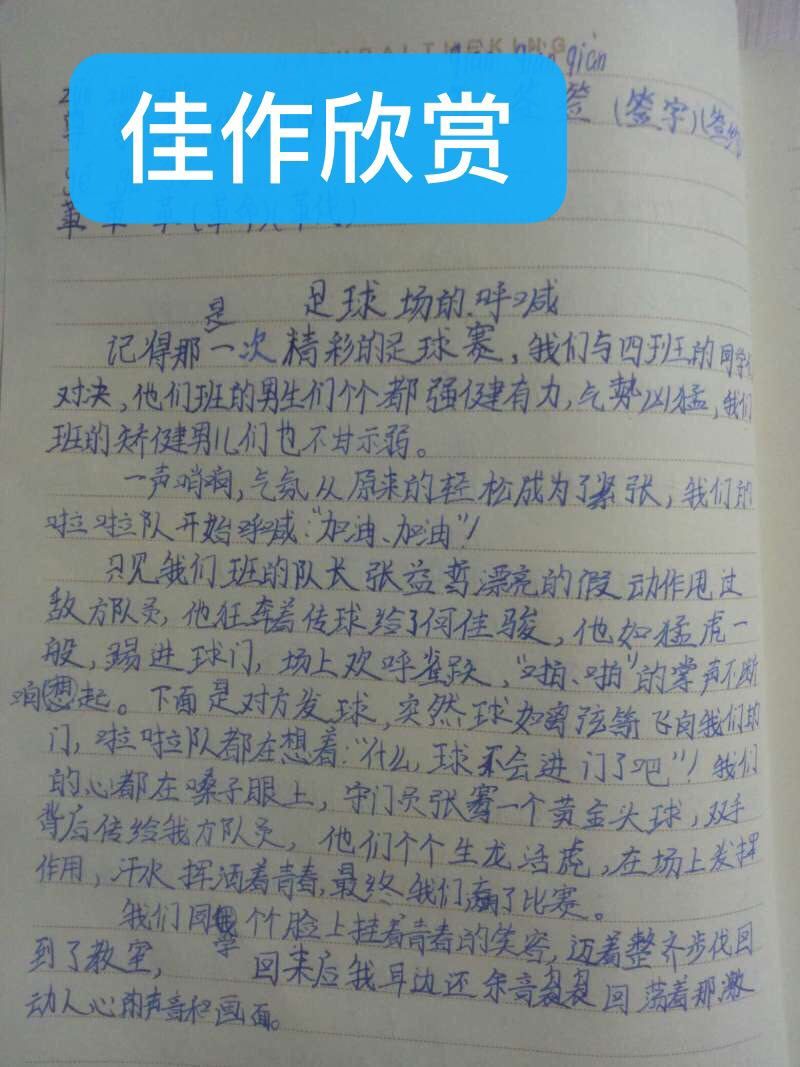 qiān qiān qiān
佳作欣赏
签 签 (签字)(签约
革 革 革 (革命)(革伐)
足球场的呼喊
记得那是一次精彩的足球赛，我们与四班的同学们
对决，他们班的男生们个个都强健有力，气势凶猛，我们
班的矫健男儿们也不甘示弱。
一声哨响，气氛从原来的轻松成为了紧张，我们的
啦啦队开始呼喊：“加油、加油”！
只见我们班的队长张益哲漂亮的假动作甩过
敌方队员，他狂奔着传球给了何佳骏，他如猛虎一
般，踢进球门，场上欢呼雀跃，“啪、啪”的掌声不断
响起。下面是对方发球，突然球如离弦箭飞向我们的
门，啦啦队都在想着：“什么，球不会进门了吧”！我们
的心都在嗓子眼上，守门员张赛一个黄金头球，双手
背后传给我方队员，他们个个生龙活虎，在场上发挥
作用，汗水挥洒着青春，最终我们赢了比赛。
我们同学个个脸上挂着青春的笑容，迈着整齐步伐回
到了教室，回来后我耳边还余音袅袅回荡着那激
动人心的声音和画面。